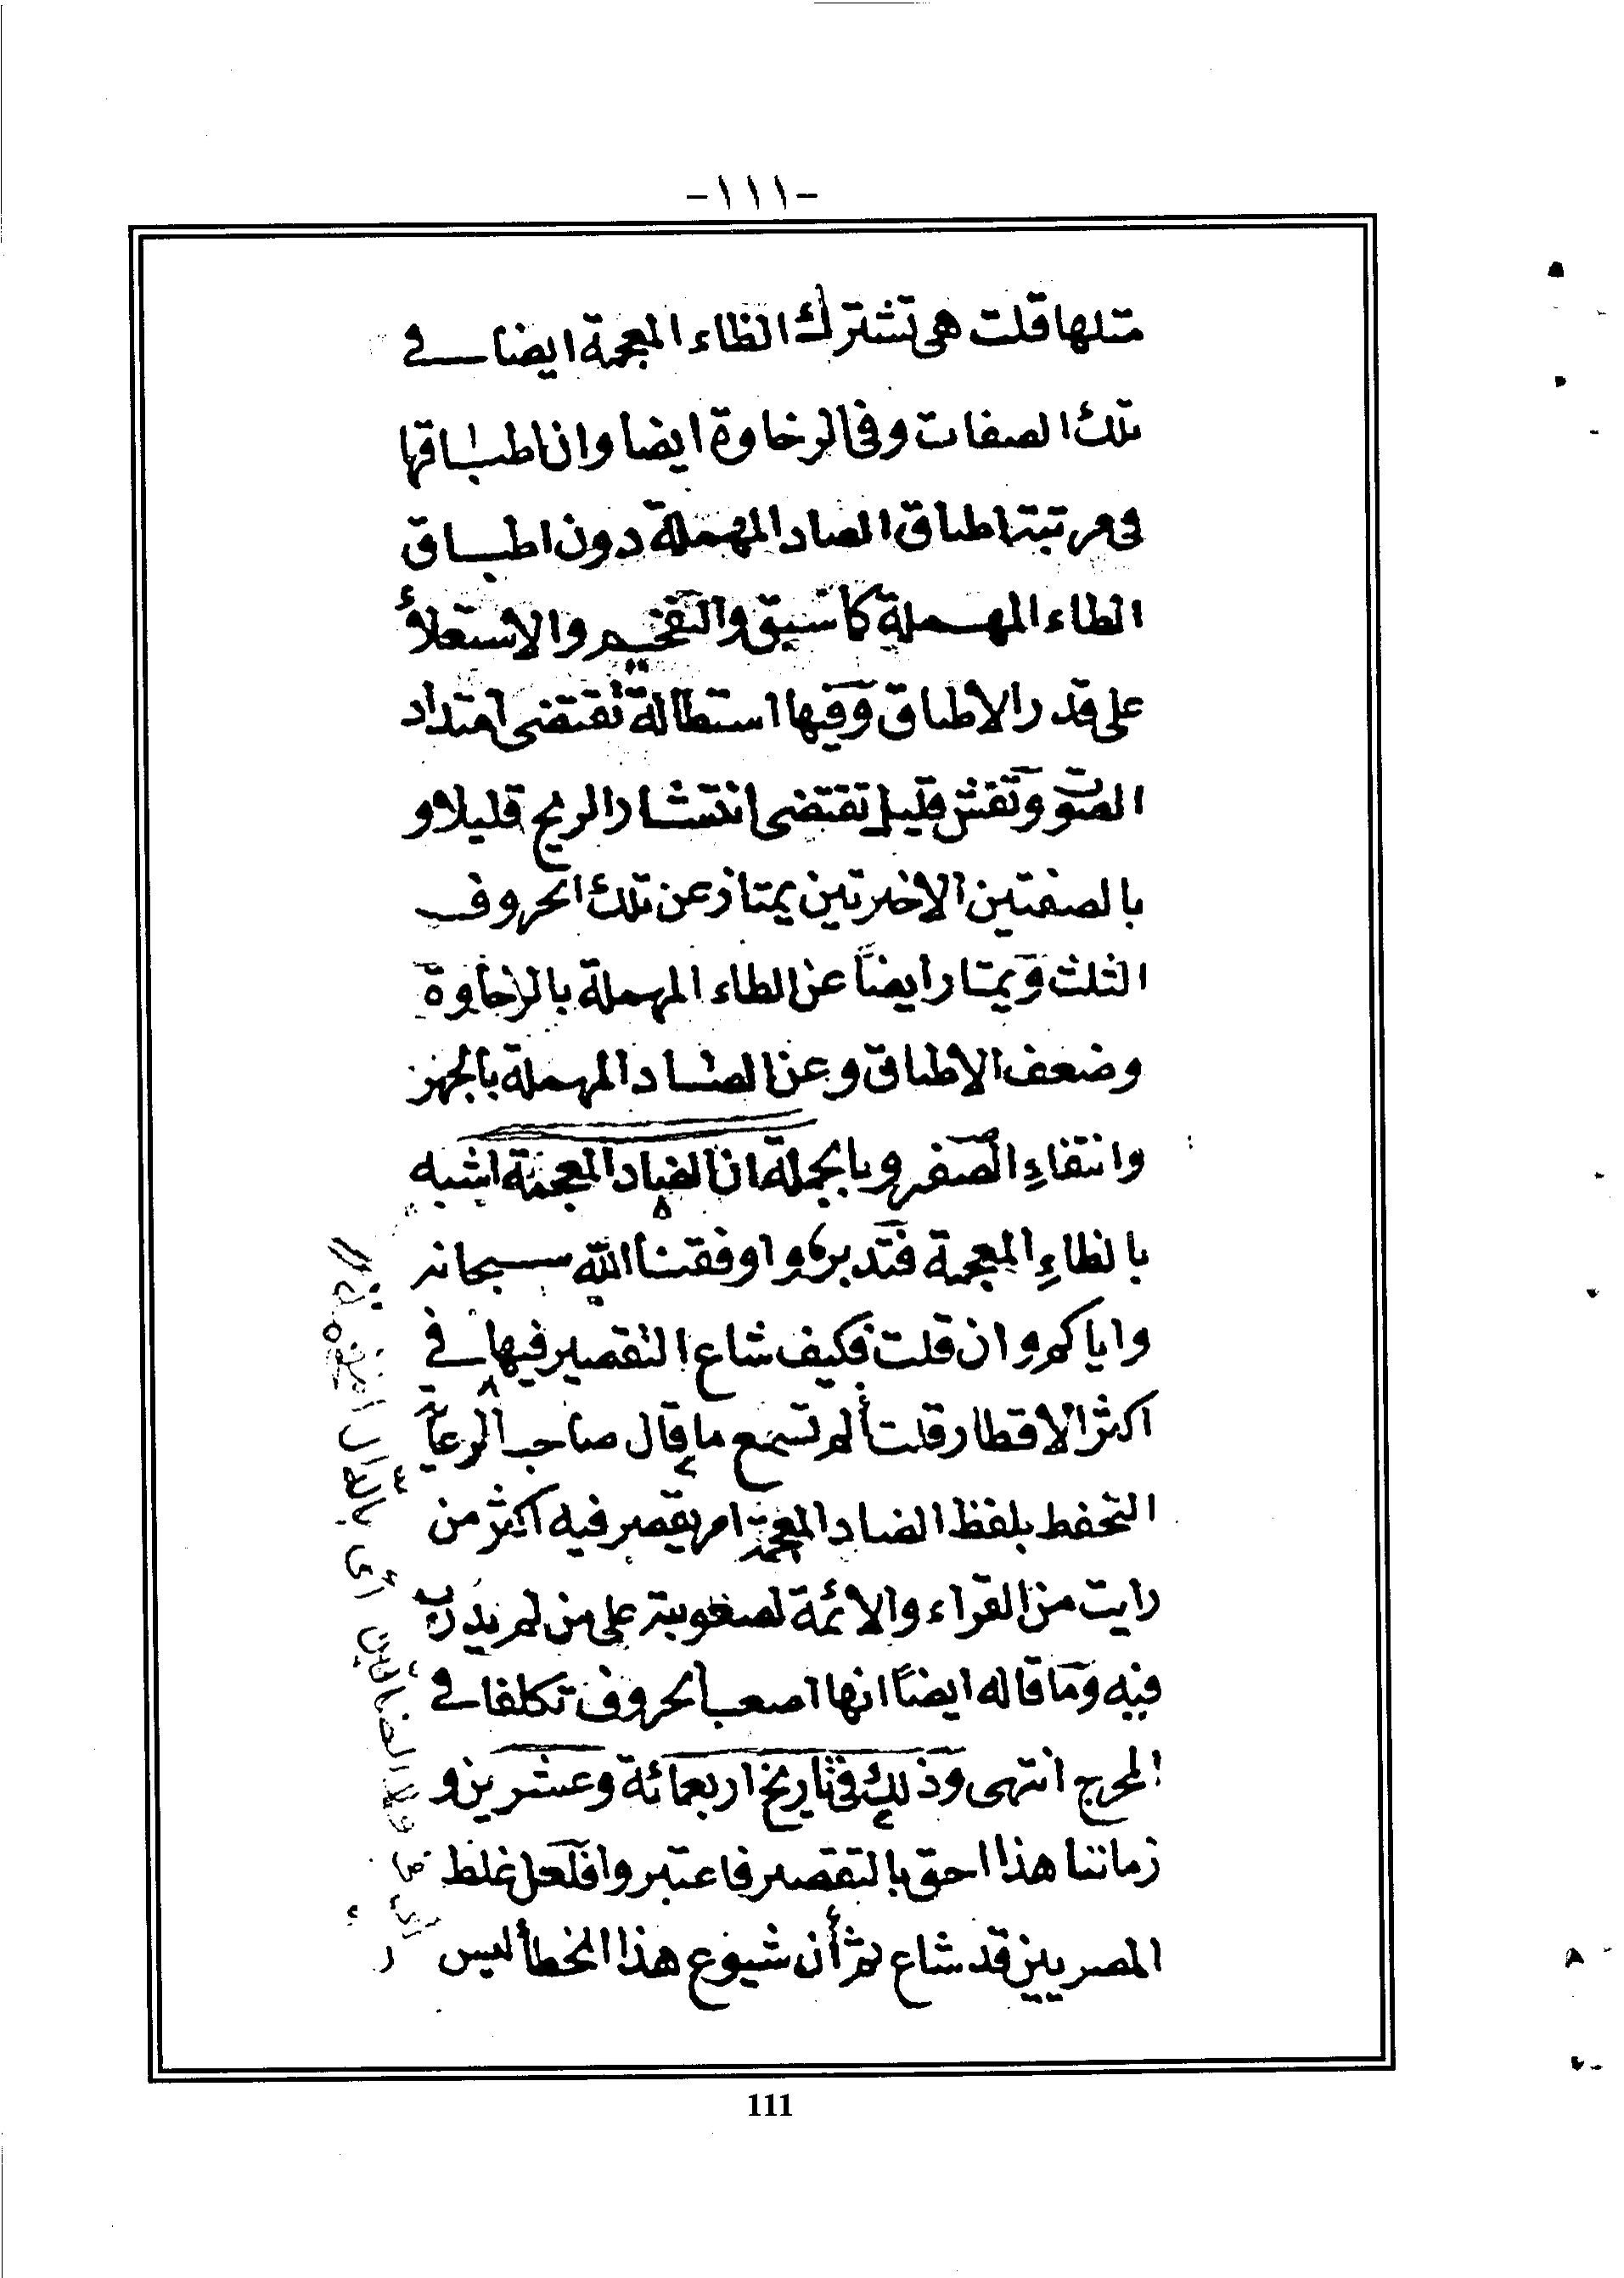 -١١١-
مثلها قلت هى تشترك الظاء المعجمة ايضا فى
تلك الصفات وفى الرخاوة ايضا وان اطباقها
فى مرتبة اطباق الصاد المهملة دون اطباق
الطاء المهملة كما سبق والتفخيم والاستعلاء
على قدر الاطباق وفيها استطالة تقتضى امتداد
الصوت وتفش قليل تقتضى انتشار الريح قليلا و
بالصفتين الاخيرتين يمتاز عن تلك الحروف
الثلث ويمتاز ايضاً عن الطاء المهملة بالرخاوة
وضعف الاطباق وعن الصاد المهملة بالجهر
وانتفاءِ الصفير وبالجملة ان الضاد المعجمة اشبه
بالظاءِ المعجمة فتدبروا وفقنا الله سبحانه
واياكم وان قلت فكيف شاع التقصير فيها فى
اكثر الاقطار قلت ألم تسمع ما قال صاحب الرعاية
التحفظ بلفظ الضاد المعجمة امر يقصر فيه اكثر من
رايت من القراء والائمة لصعوبته على من لم يدرب
فيه وما قاله ايضاً انها اصعب الحروف تكلفا فى
المخرج انتهى وذلك فى تاريخ اربعمائة وعشرين و
زماننا هذا احق بالتقصير فاعتبروا فلعل غلط
المصريين قد شاع ثم أن شيوع هذا الخطأ ليس
ولا الضالين أى بالدال
111